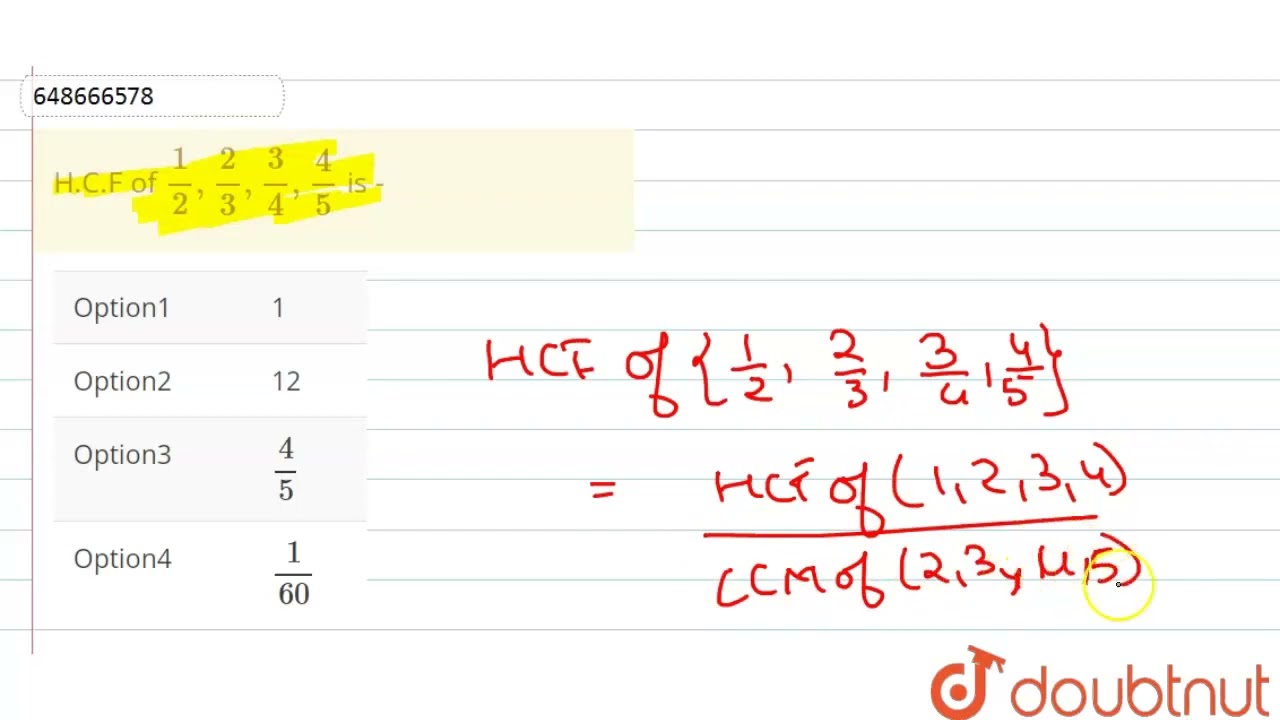 648666578
H.C.F of 1/2, 2/3, 3/4, 4/5 is -
Option1 1
Option2 12
Option3 4/5
Option4 1/60
HCF of {1/2, 2/3, 3/4, 4/5}
= HCF of (1,2,3,4) / LCM of (2,3,4,5)
doubtnut